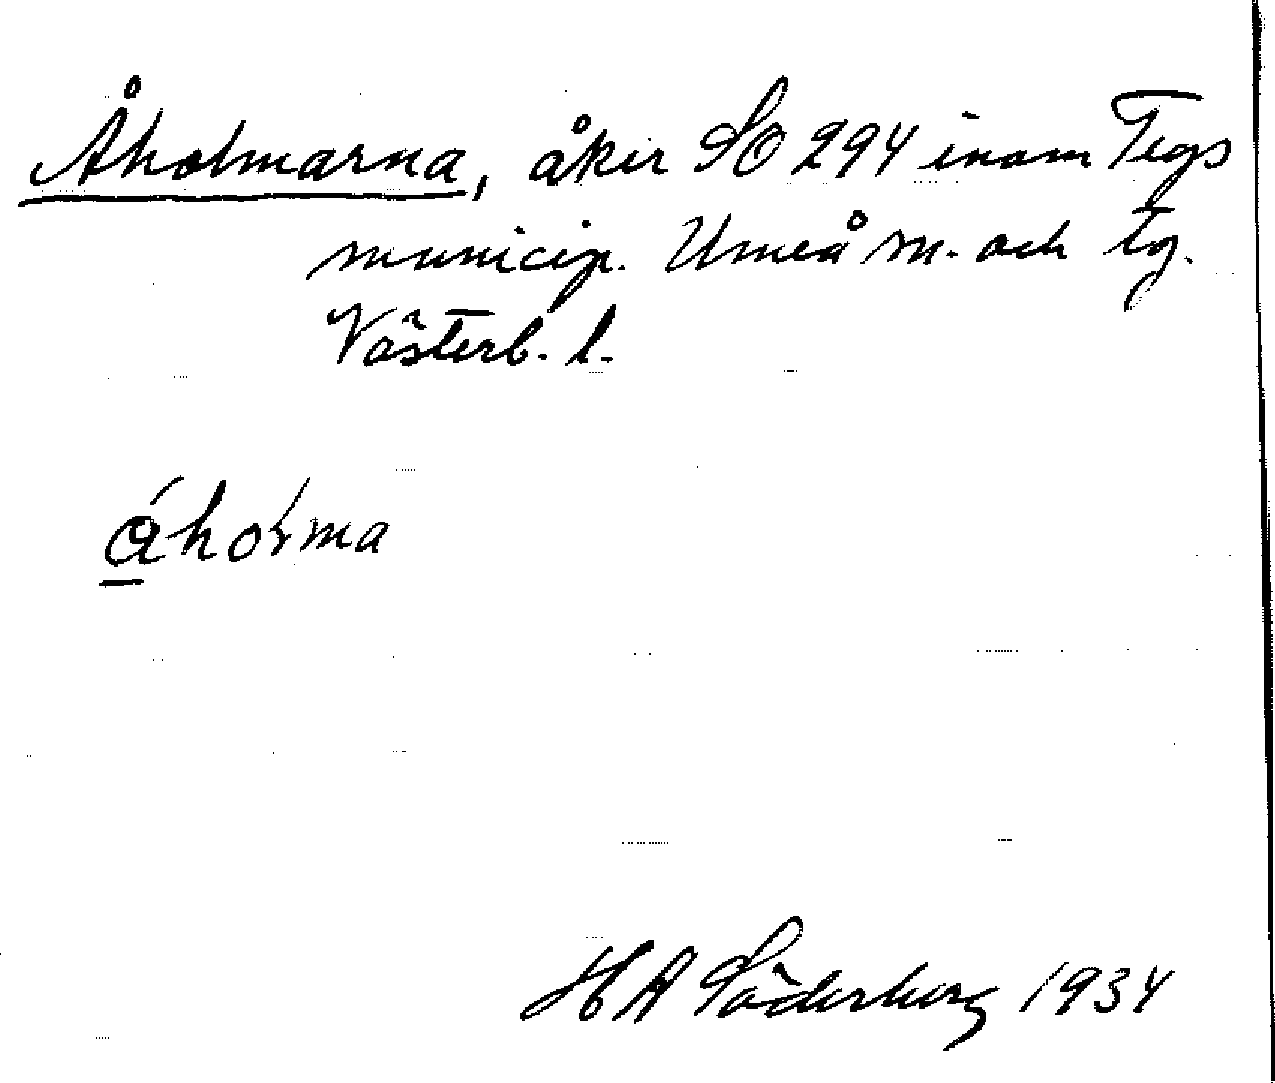 Åholmarna, åker SO 294 inom Tegs
municip. Umeå sn. och tg.
Västerb. l.
åholma
H A Söderberg 1934